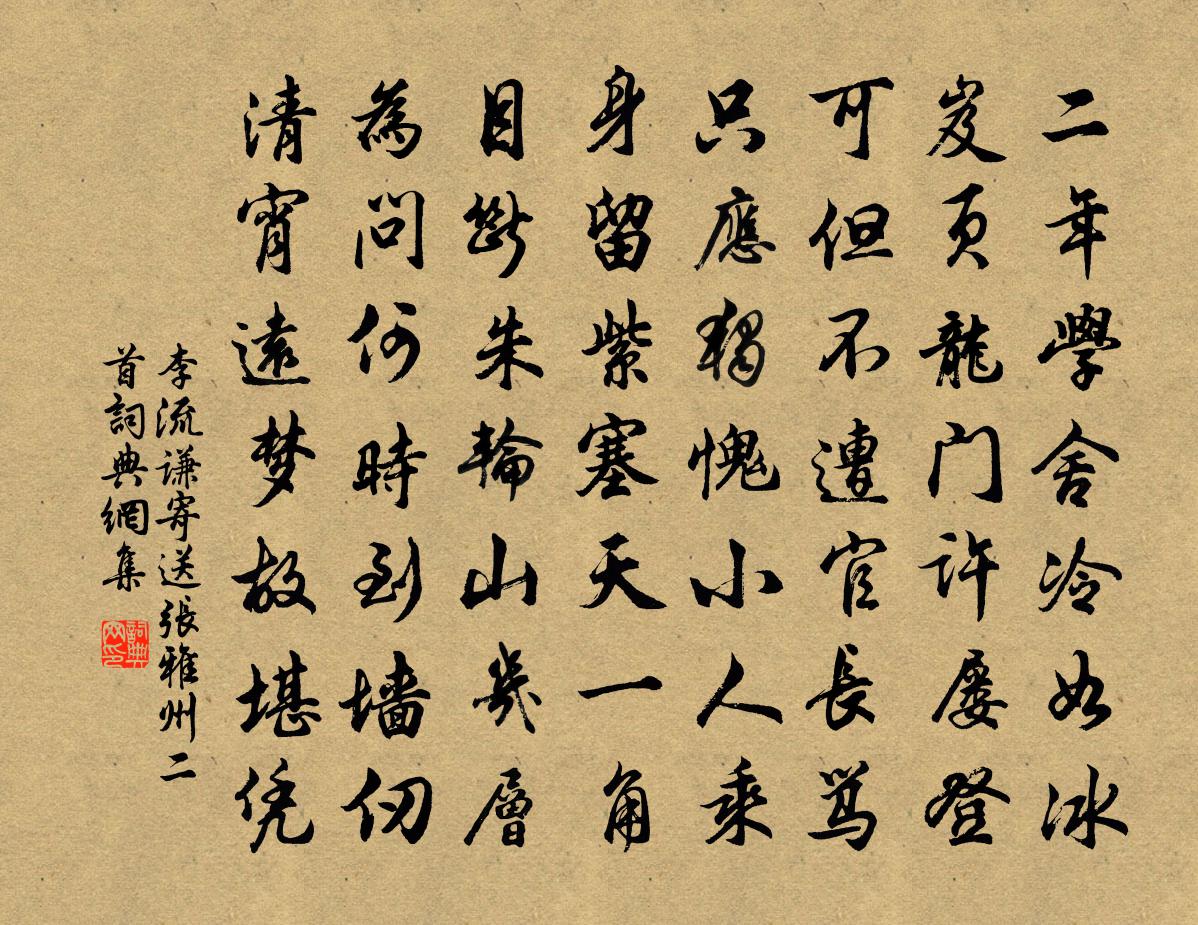 二年學舍冷如冰
岌頁龍门许屡登
可但不遭官長骂
只應獨愧小人乘
身留紫塞天一角
目斷朱輪山幾層
為問何時到墙仞
清宵遠梦故堪凭
李流谦寄送張雅州二
首詞典網集
詞典网印